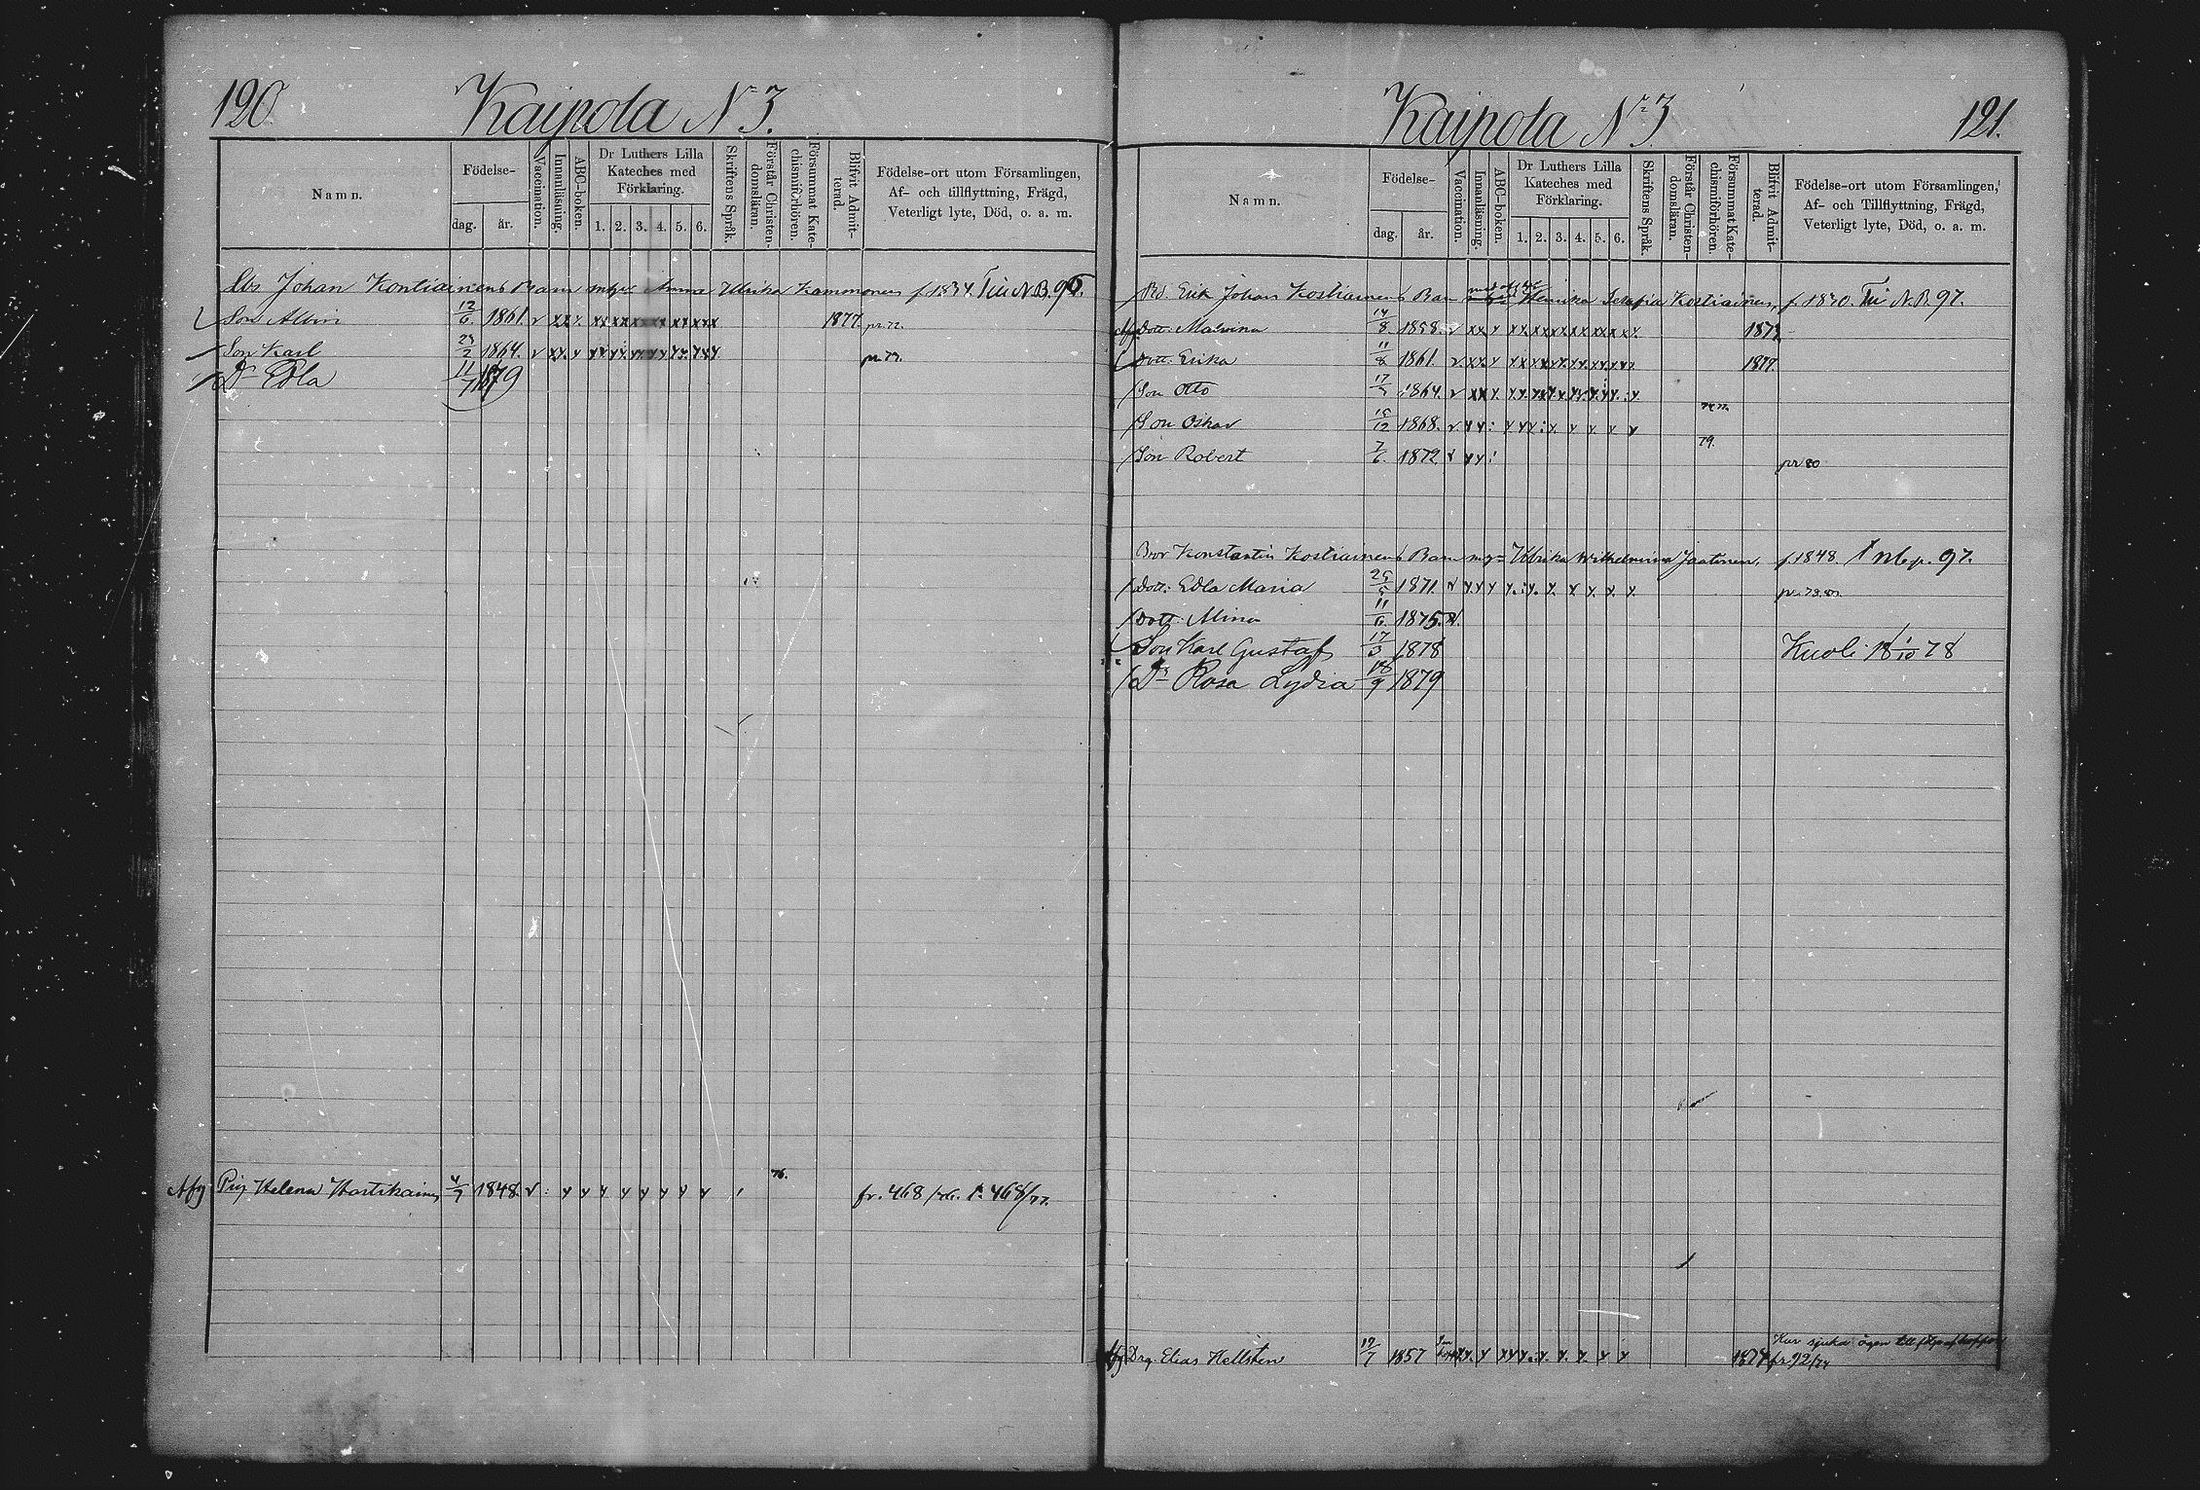 120 Kaipola N:o 3.
Namn.
Födelse-
dag.
år.
Vaccination.
Innanläsning.
ABC-boken.
Dr Luthers Lilla
Kateches med
Förklaring.
1. 2. 3. 4. 5. 6.
Skriftens Språk.
Förstår Christen-
domsläran.
Försummat Kate-
chismiförhören.
Blifvit Admit-
terad.
Födelse-ort utom Församlingen,
Af- och tillflyttning, Frägd,
Veterligt lyte, Död, o. a. m.
Johan Kontiainens Barn Anna Ulrika Kammonen f. 1834 N.B. 96.
Son Albin 12/6. 1861. 1877.
Son Karl 29/2 1864.
Dr Edla 11/7 1879
Afg Pig Helena 4/7 1848. 76. fr. 468 /76. 468/77.
Kaipola N:r 3 121.
Namn.
Födelse-
dag.
år.
Vaccination.
Innanläsning.
ABC-boken.
Dr Luthers Lilla
Kateches med
Förklaring.
1. 2. 3. 4. 5. 6.
Skriftens Språk.
Förstår Christen-
domsläran.
Försummat Kate-
chismiförhören.
Blifvit Admit-
terad.
Födelse-ort utom Församlingen,
Af- och Tillflyttning, Frägd,
Veterligt lyte, Död, o. a. m.
Erik Johan Kostiainens Barn Henrika Serafia Kostiainen, f. 1830. N.B. 97.
Dott. Malvina 14/8. 1858.
Dott. Erika 11/8 1861. 1877.
Son Otto 1864.
Son Oskar 15/12 1868. 79.
Son Robert 7/6. 1872 pr 80
Bror Konstantin Kostiainens Barn Ulrika Wilhelmina Jaatinen, f. 1848. p. 97.
Dott. Edla Maria 1871.
Dott. Mina 11/6. 1875.
Son Karl Gustaf 17/3 1878 Kuoli 18 1/10 78
Dr Rosa Lydia 18/9 1879
Drg. Elias Hellsten 19/7 1857 1874 fr. 92/74
Har sjuka ögon